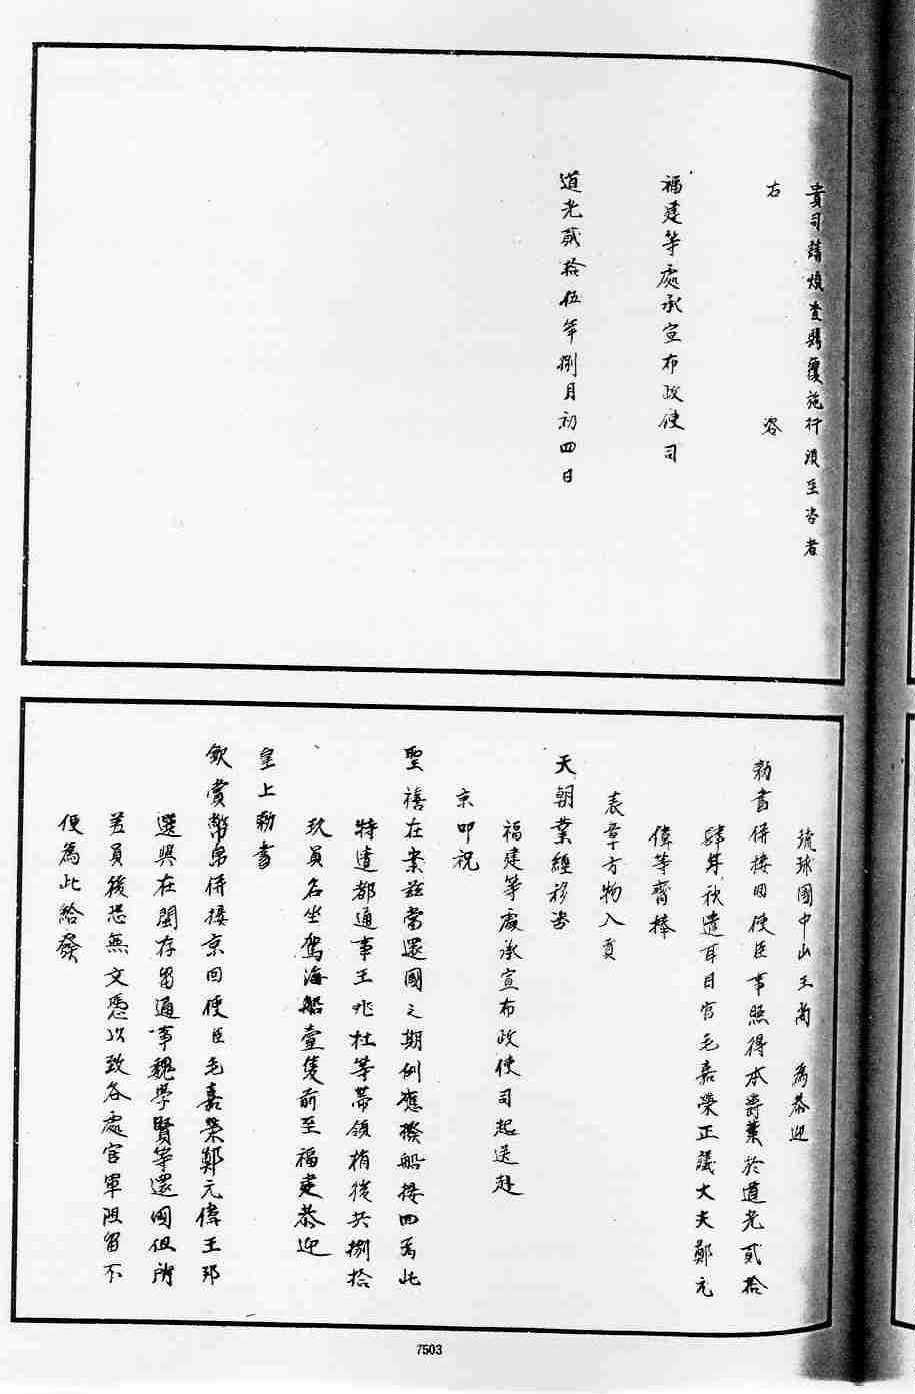 貴司請煩查照覆施行湏至咨者
右　咨
福建等處承宣布政使司
道光貳拾伍年捌月初四日
琉球國中山王尚　為恭迎
勅書併接回使臣事照得本爵業於道光貳拾
肆年秋遣耳目官毛嘉榮正議大夫鄭元
偉等齎捧
表章方物入貢
天朝業經移咨
福建等處承宣布政使司起送赴
京叩祝
聖禧在案兹當還國之期例應撥船接回為此
特遣都通事王兆杜等帶領梢後共捌拾
玖員名坐駕海船壹隻前至福建恭迎
皇上勅書
欽賞幣帛併接京回使臣毛嘉榮鄭元偉王邦
選與在閩存留通事魏學賢等還國但所
差員後恐無文憑以致各處官軍阻留不
便為此給發
7503